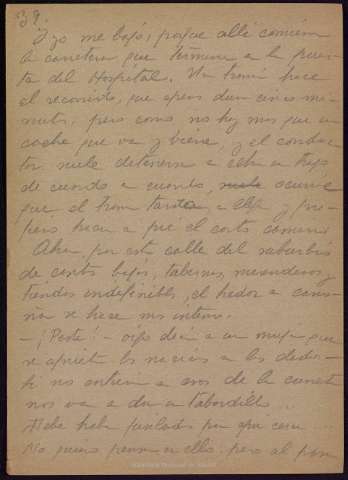 39.
Y yo me bajo, porque allí comienza
la carretera que termina a la puer-
ta del Hospital. Un tranvía hace
el recorrido, que apenas dura cinco mi-
nutos; pero como no hay mas que un
coche que va y viene, y el conduc-
tor suele detenerse a echar un trago
de cuando a cuando, suele ocurrir
que el tranvía tarda a
hacer a pie el corto camino.
por esta calle del suburbio
de casas bajas, tabernas, merenderos y
tiendas indefinibles, el hedor a carro-
ña se hace mas intenso.
— ¡Peste! — oigo decir a una mujer que
se aprieta las narices a los dedos —
Si no entierran a esos de la cuneta
nos va a dar un tabardillo...
Debe haber fusilados por aquí cerca...
No quiero pensar en ello; pero al pasar